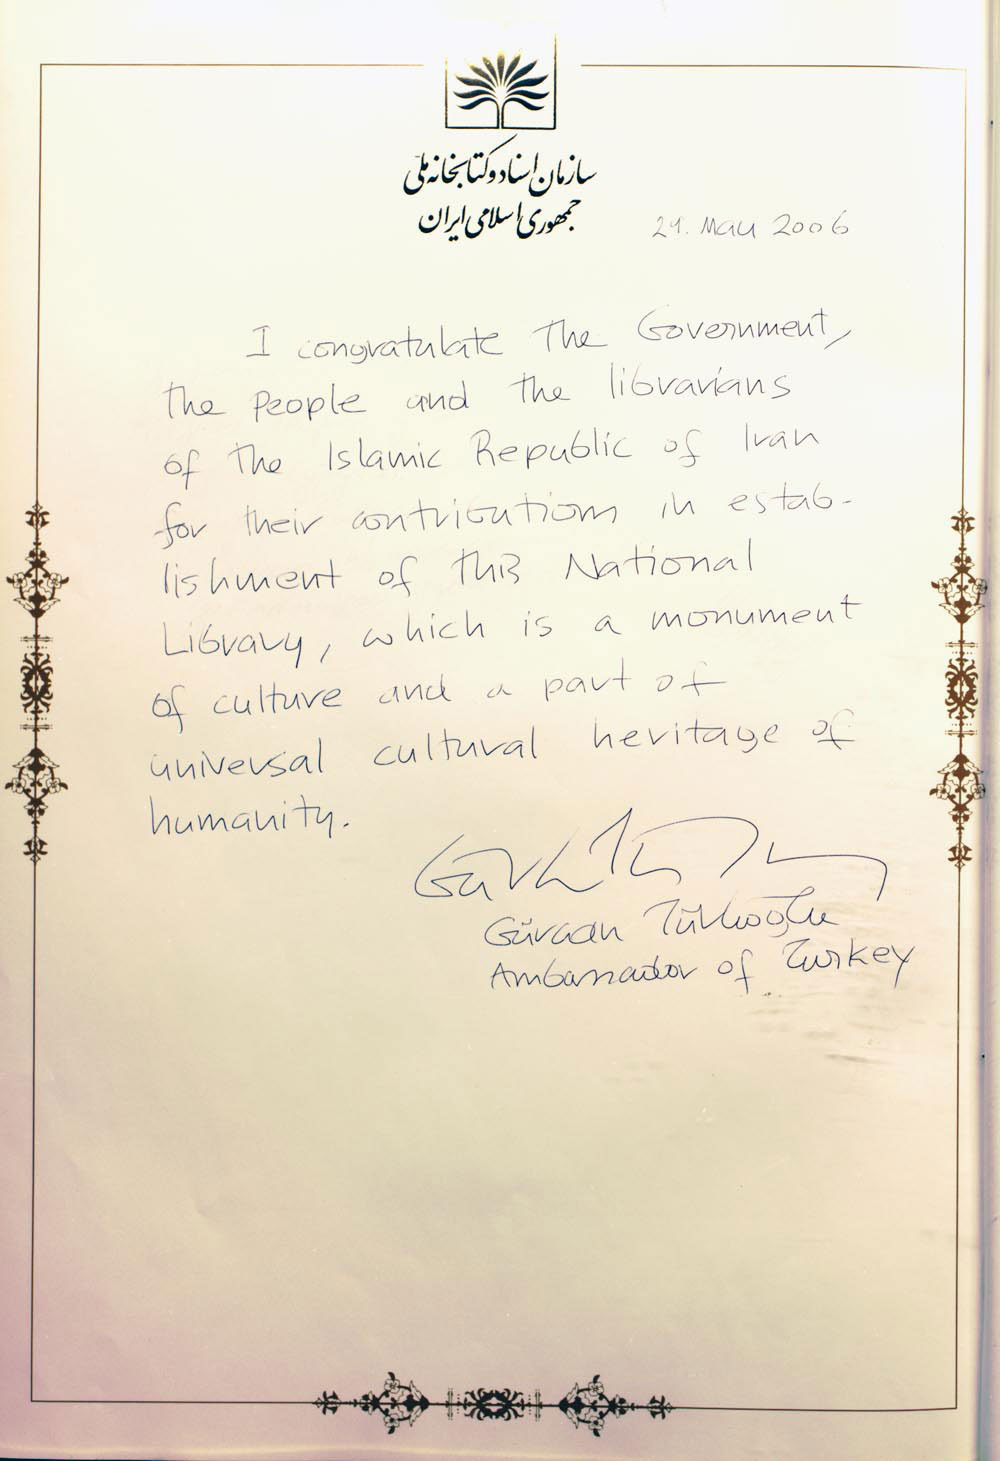 سازمان اسناد و کتابخانه ملی
جمهوری اسلامی ایران
May 2006
I congratulate the Government,
the people and the librarians
of the Islamic Republic of Iran
for their contributions in estab-
lishment of this National
Library, which is a monument
of culture and a part of
universal cultural heritage of
humanity.
Gürcan Türkoğlu
Ambassador of Turkey